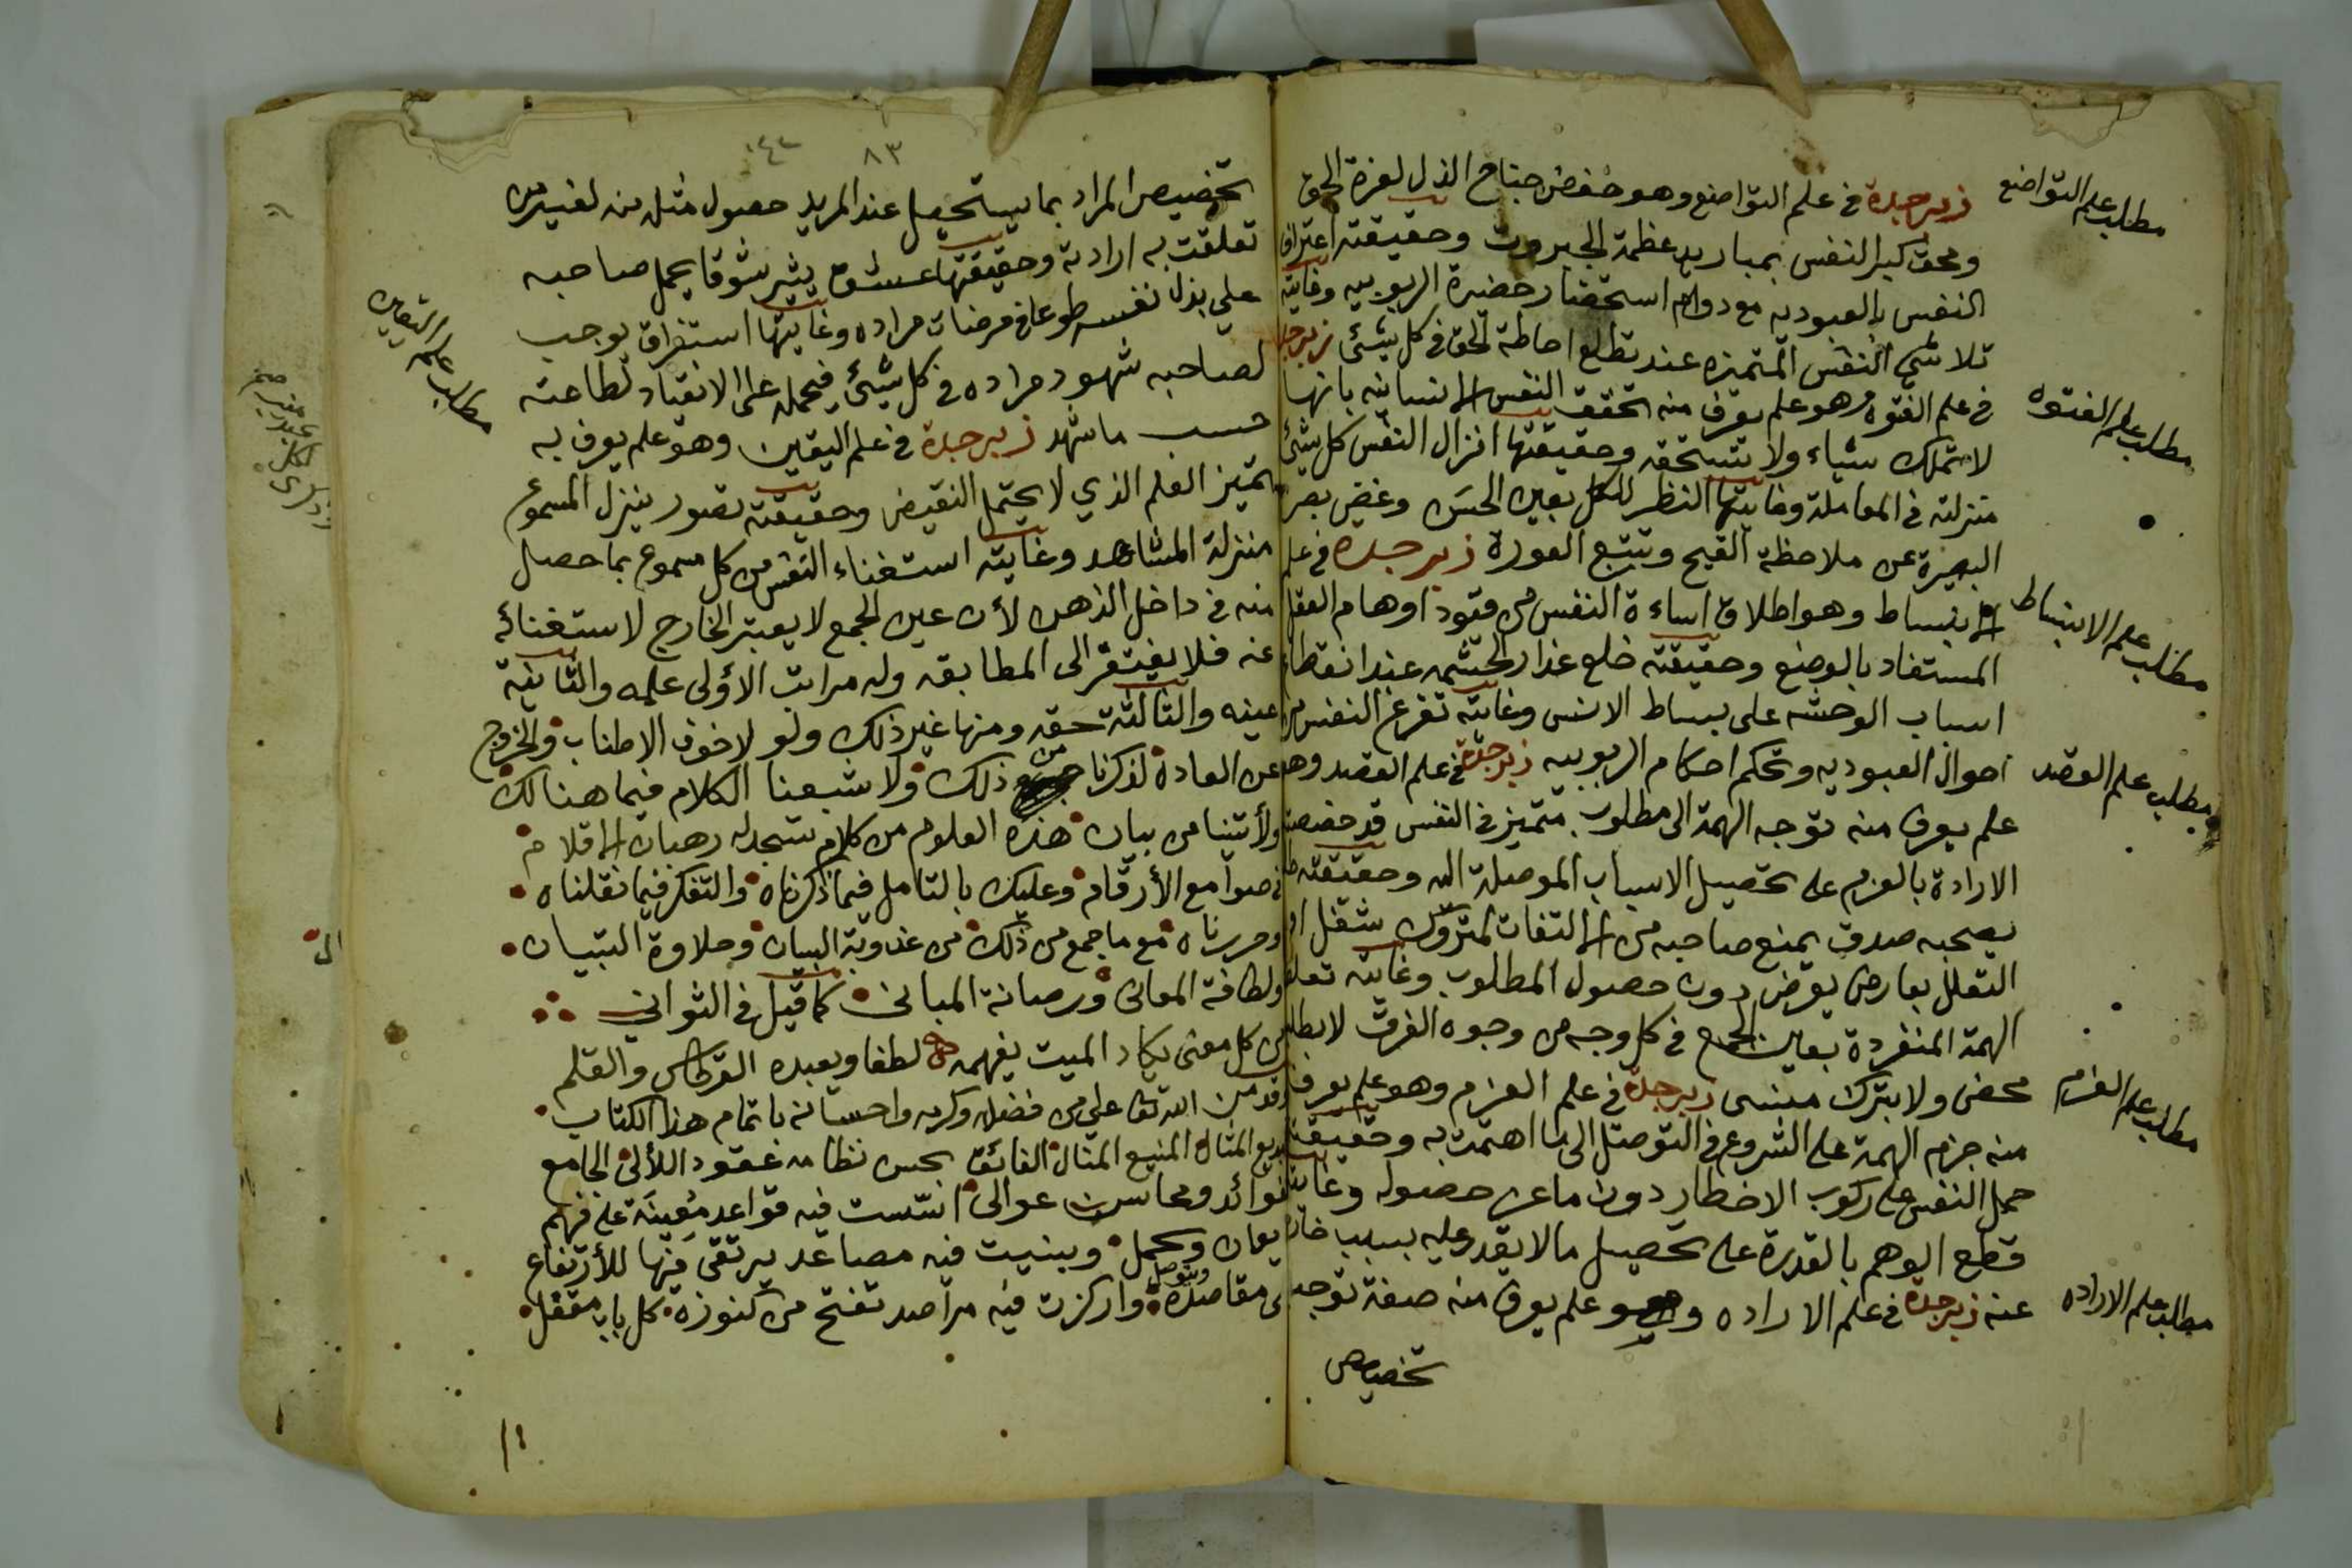 مطلب علم التواضع
زبرجدة في علم التواضع وهو خفض جناح الذل لعزة الحق
ومحق كبر النفس بمباريد عظمة الجبروت وحقيقته اعتراف
النفس بالعبوديه مع دوام استحضار حضرة الربوبيه وغايته
تلاشي النفس المتميزه عند تطلع احاطة الحق في كل شيئ زبرجدة
مطلب علم الفتوه
في علم الفتوه وهو علم يعرف منه تحقق النفس الانسانيه بانها
لا تملك شياء ولا تستحقه وحقيقتها انزال النفس كل شيئ
منزلته في المعاملة وغايتها النظر للكل بعين الحسن وغض بصر
البصيرة عن ملاحظة القبح وتتبع العورة زبرجده في علم
مطلب علم الانبساط
الانبساط وهو اطلاق اساءة النفس من قيود اوهام العقل
المستفاد بالوضع وحقيقته خلع عذار الحشمه عند انقطاع
اسباب الوحشه على بساط الانس وغايته تفرغ النفس من
احوال العبوديه وتحكم احكام الربوبيه زبرجدة في علم القصد وهو
مطلب علم القصد
علم يعرف منه توجه الهمة الى مطلوب متميز في النفس قد خصصته
الارادة بالعزم على تحصيل الاسباب الموصلة اليه وحقيقته
يصحبه صدق يمنع صاحبه من الالتفات لمتروك شغل او
التعلل بعارض يعرض دون حصول المطلوب وغايته تعلق
الهمة المنفردة بعين الجمع في كل وجه من وجوه الفرق لا يطلب
محض ولا يترك منسى زبرجدة في علم العزم وهو علم يعرف
مطلب علم العزم
منه جزم الهمة على الشروع في التوصل الى ما اهتمت به وحقيقته
حمل النفس على ركوب الاخطار دون ما عز حصوله وغايته
قطع الوهم بالقدرة على تحصيل ما لا يقدر عليه بسبب
عنه زبرجدة في علم الاراده وهو علم يعرف منه صفة توجب
مطلب علم الاراده
تخصيص
٨٣
تخصيص المراد بما يستحيل عند المريد حصول مثله منه لغير من
تعلقت به ارادته وحقيقتها عشق يثير شوقا يحمل صاحبه
على بذل نفسه طوعا في مرضات مراده وغايتها استغراق يوجب
لصاحبه شهود مراده في كل شيئ فيحمله على الانقياد لطاعته
مطلب علم اليقين
حسب ما شهد زبرجدة في علم اليقين وهو علم يعرف به
تميز العلم الذي لا يحتمل النقيض وحقيقته تصور ينزل المسموع
منزلة المشاهد وغايته استغناء النفس من كل مسموع بما حصل
منه في داخل الذهن لأن عين الجمع لا يعتبر الخارج لاستغنائه
عنه فلا يفتقر الى المطابقه وله مراتب الأولى علمه والثانية
عينه والثالثة حقه ومنها غير ذلك ولو لا خوف الاطناب والخروج
عن العادة لذكرنا من ذلك ولا شبعنا الكلام فيما هنالك
ولأتينا من بيان هذه العلوم من كلام تسجد له رهبان الاقلام
في صوامع الأرقام وعليك بالتامل فيما ذكرناه والتفكر فيما نقلناه
وحررناه مع ما جمع من ذلك من عذوبة البيان وحلاوة التبيان
ولطافة المعاني ورصانة المباني كما قيل في الثواني
من كل معنى يكاد الميت يفهمه لطفا ويعبده القرطاس والقلم
وقد من الله تعا علي من فضله وكرمه واحسانه باتمام هذا الكتاب
بديع المثال المنيع المنال الفائق بحسن نظامه عقود اللألئ الجامع
فوائد ومحاسن عوالى اسست فيه قواعد معينة على فهم
وتحمل وبنيت فيه مصاعد يرتقى فيها للأرتفاع
ويتوصل
مقاصده واركزت فيه مراصد تفتح من كنوزه كل باب مقفل
الى